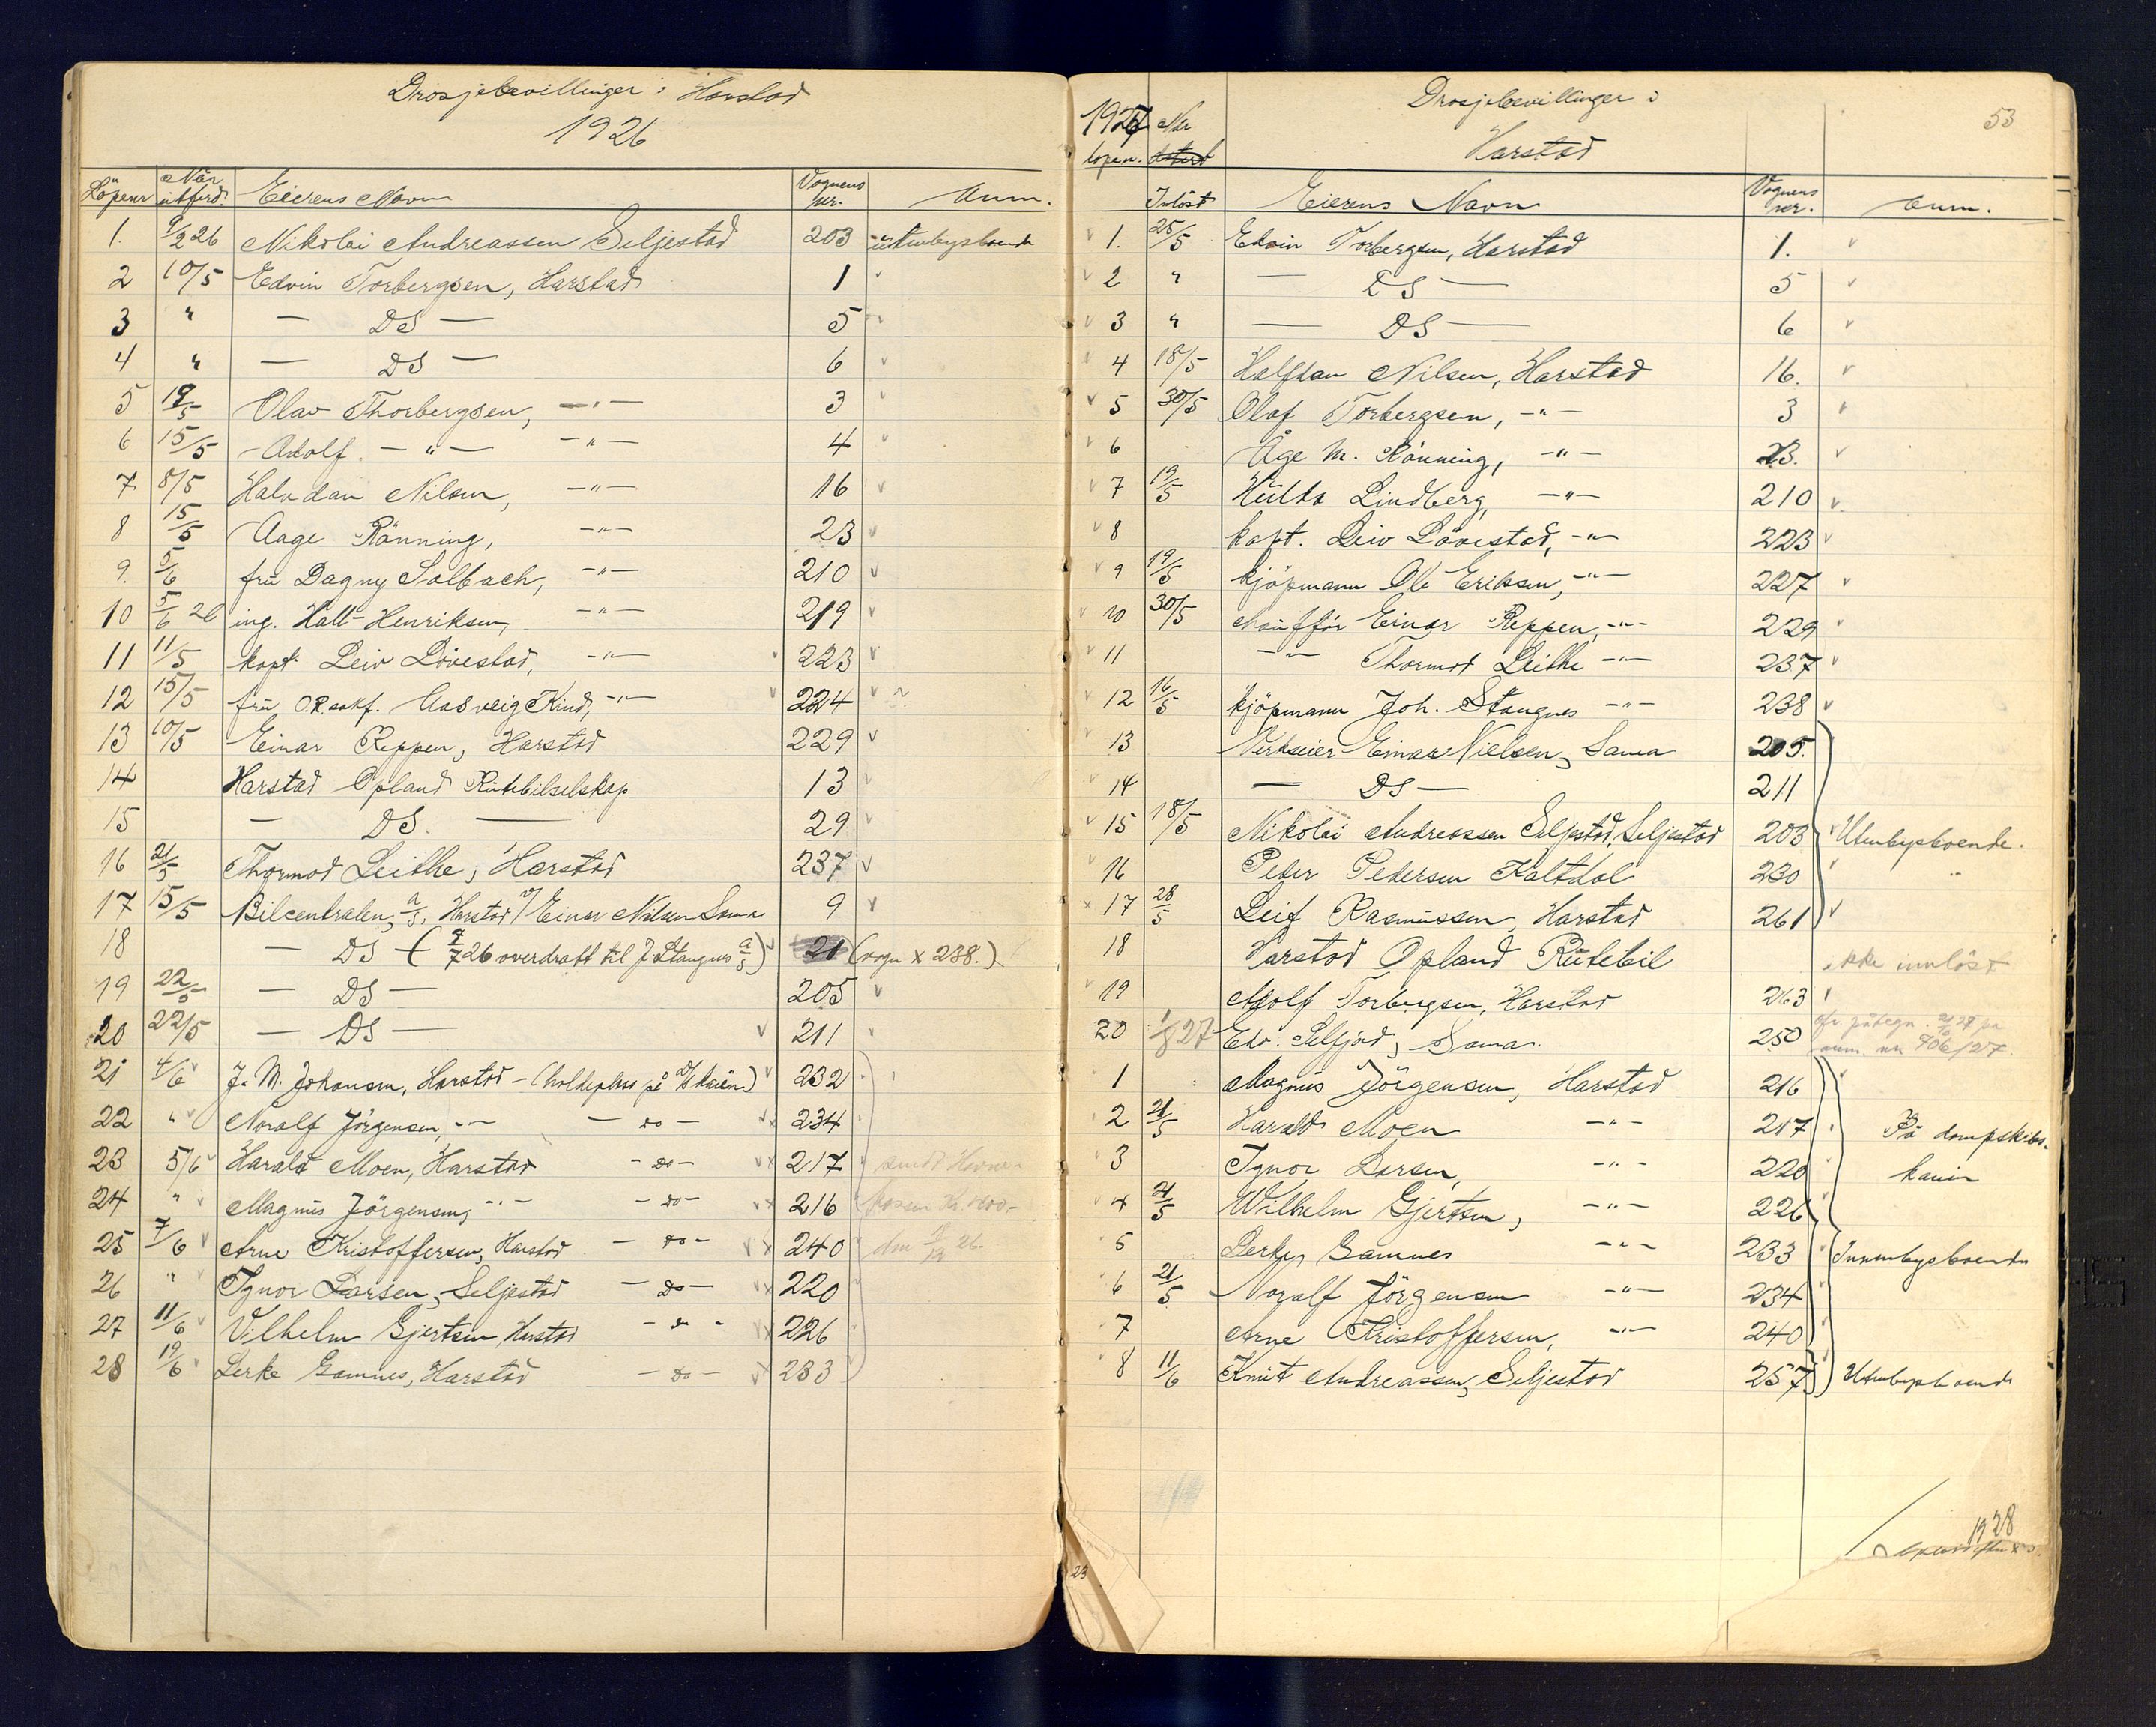 Drosjebevillinger i Harstad
1926
Löpenr Når utferd. Eierens Navn Vognens nr. Anm.
1. 9/2 26 Nikolai Andreassen Seljestad 203 utenbysboende
2 10/5 Edvin Torbergsen, Harstad 1 v
3 " — DS — 5 v
4 " — DS — 6 v
5 19/5 Olav Thorbergsen, —"— 3 v
6 15/5 Adolf —"— —"— 4 v
7 8/5 Halvdan Nilsen, —"— 16 v
8 15/5 Aage Rönning, —"— 23 v
9. 5/6 frü Dagny Solbach, —"— 210 v
10 5/6 26 ing. Hall-Henriksen, —"— 219 v
11 11/5 kapt. Leiv Lövestad, —"— 223 v
12 15/5 frü O.R.sakf. Aasveig Kind, —"— v 224 v
13 10/5 Einar Reppen, Harstad 229 v
14 Harstad Opland Rütebilselskap 13 v
15 — DS. — 29 v
16 21/5 Thormod Leithe, Harstad 237 v
17 15/5 Bilcentralen, a/s, Harstad v/ Einar Nilsen Sama 9 v
18 — DS — (7/7 26 overdratt til J. Stangnes a/s) v 21 (vogn x 238.)
19 22/5 — DS — 205 v
20 22/5 — DS — v 211 v
21 4/6 v J. M. Johansen, Harstad - (holdeplass på D/S kaien) v 232
22 " v Noralf Jörgensen, —"— — do — vx 234
23 5/6 v Harald Moen, Harstad — do — vx 217 sendt Havne-
24 " v Magnus Jörgensen, —"— — do — vx 216 kassen Kr.
25 7/6 v Arne Kristoffersen, Harstad — do — vx 240 den
26 " v Ignor Larsen, Seljestad — do — vx 220
27 11/6 v Vilhelm Gjertsen, Harstad — do — vx 226
28 19/6 v Lerke Gamnes, Harstad — do — vx 233
1927 Når Drosjebevillinger i 53
löpenr. Harstad
Inlöst Eierens Navn Vognens nr. Anm.
v 1. 25/5 Edvin Torbergsen, Harstad 1. v
v 2 " — DS — 5 v
v 3 " — DS — 6 v
v 4 18/5 Halfdan Nilsen, Harstad 16. v
v 5 30/5 Olaf Torbergsen, —"— 3 v
v 6 Åge M. Rönning, —"— 23. v
v 7 19/5 Hülda Lindberg, —"— 210 v
v 8 kapt. Leiv Lövestad, —"— 223 v
v 9 19/5 kjöpmann Ole Eriksen, —"— 227 v
v 10 30/5 chaufför Einar Reppen, —"— 229 v
v 11 —"— Thormod Leithe —"— 237 v
v 12 16/5 kjöpmann Joh. Stangnes —"— 238 v
v 13 Verkseier Einar Nielsen, Sama 205.
v 14 — DS — 211
v 15 18/5 Nikolai Andreassen Seljestad, Seljestad 203 v Utenbysboende.
v 16 Peder Pedersen Kaltdal 230 v "
x 17 28/5 Leif Rasmüssen, Harstad 261 v
18 Harstad Opland Rütebil ikke innlöst
v 19 Adolf Torbergsen, Harstad 263 v
20 1/8 27 Edv. Selfjord, Sama. 250 cfr. påtegn. 21/6 27 på
anm. nr 706/27.
1 Magnüs Jörgensen, Harstad 216
2 21/5 Harald Moen —"— 217 På dampskibs-
3 Ignor Larsen, —"— 220 kaien
4 21/5 Wilhelm Gjertsen, —"— 226
5 Lerke, Gamnes —"— 233 Innenbysboende
6 21/5 Noralf Jörgensen —"— 234
7 Arne Kristoffersen, —"— 240
8 11/6 Knüt Andreassen, Seljestad 257 Utenbysboende
1928
23